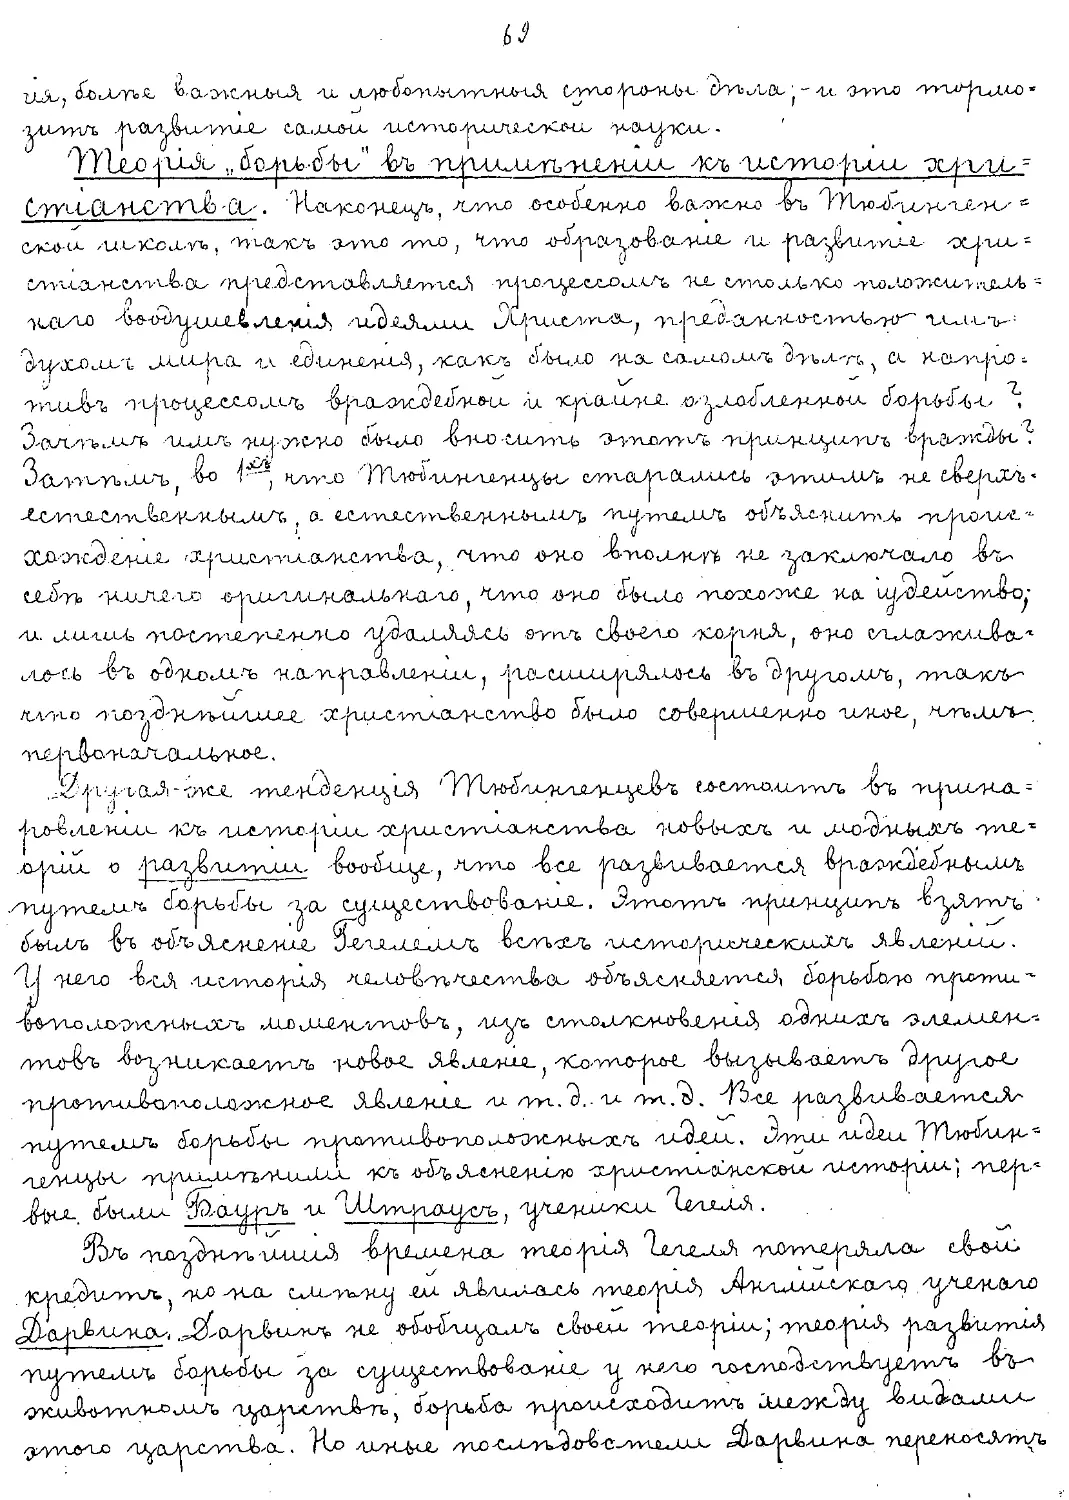 69
гія, болѣе важныя и любопытныя стороны дѣла; - и это тормо=
зитъ развитіе самой исторической науки.
Теорія „борьбы" въ примѣненіи къ исторіи хри=
стіанства. Наконецъ, что особенно важно въ Тюбинген=
ской школѣ, такъ это то, что образованіе и развитіе хри=
стіанства представляется процессомъ не столько положитель=
наго воодушевленія идеями Христа, преданностью имъ
духомъ мира и единенія, какъ было на самомъ дѣлѣ, а напро=
тивъ процессомъ враждебной и крайне озлобленной борьбы?
Зачѣмъ имъ нужно было вносить этотъ принципъ вражды?
Затѣмъ, во 1хъ, что Тюбингенцы старались этимъ не сверхъ=
естественнымъ, а естественнымъ путемъ объяснить проис=
хожденіе христіанства, что оно вполнѣ не заключало въ
себѣ ничего оригинальнаго, что оно было похоже на іудейство;
и лишь постепенно удаляясь отъ своего корня, оно сглажива=
лось въ одномъ направленіи, расширялось въ другомъ, такъ
что позднѣйшее христіанство было совершенно иное, чѣмъ
первоначальное.
Другая-же тенденція Тюбингенцевъ состоитъ въ прина=
ровленіи къ исторіи христіанства новыхъ и модныхъ те=
орій о развитіи вообще, что все развивается враждебнымъ
путемъ борьбы за существованіе. Этотъ принципъ взятъ
былъ въ объясненіе Гегелемъ всѣхъ историческихъ явленій.
У него вся исторія человѣчества объясняется борьбою проти=
воположныхъ моментовъ, изъ столкновенія однихъ элемен=
товъ возникаетъ новое явленіе, которое вызываетъ другое
противоположное явленіе и т. д. и т. д. Все развивается
путемъ борьбы противоположныхъ идей. Эти идеи Тюбин=
генцы примѣнили къ объясненію христіанской исторіи; пер=
вые были Бауръ и Штраусъ, ученики Гегеля.
Въ позднѣйшія времена теорія Гегеля потеряла свой
кредитъ, но на смѣну ей явилась теорія Англійскаго ученаго
Дарвина. Дарвинъ не обобщалъ своей теоріи; теорія развитія
путемъ борьбы за существованіе у него господствуетъ въ
животномъ царствѣ, борьба происходитъ между видами
этого царства. Но иные послѣдователи Дарвина переносятъ